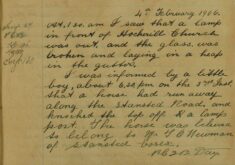 4th February 1906.
At 1.30 am I saw that a lamp
in front of Hockerill Church
was out, and the glass was
broken and laying in a heap
in the gutter.
I was informed by a little
boy, about 6.30 pm on the 3rd Inst,
that a horse had run away
along the Stansted Road, and
knocked the top off of a lamp
post. The horse was
to belong to Mr T. G. Newman
of Stansted
P.C. Day